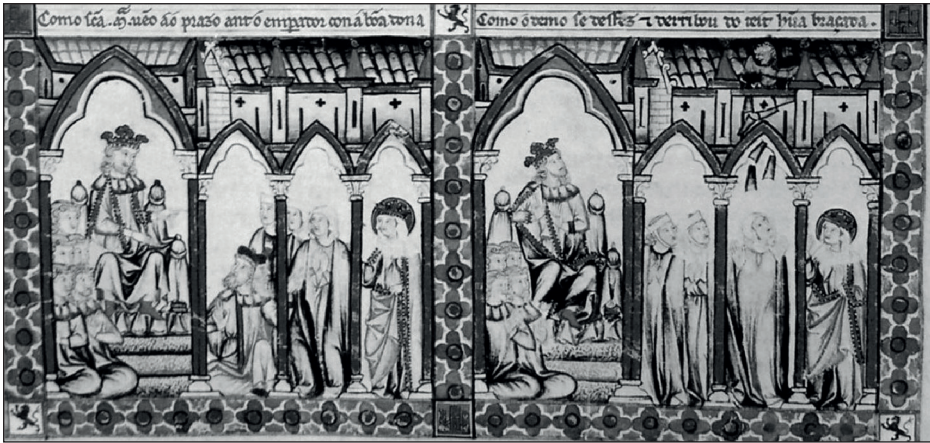 Como sc̃a. M̃. uẽo ão prazo ant'o emperador con a bõa dona
Como o demo se desfez ⁊ derribou do teit' hũa braçada.